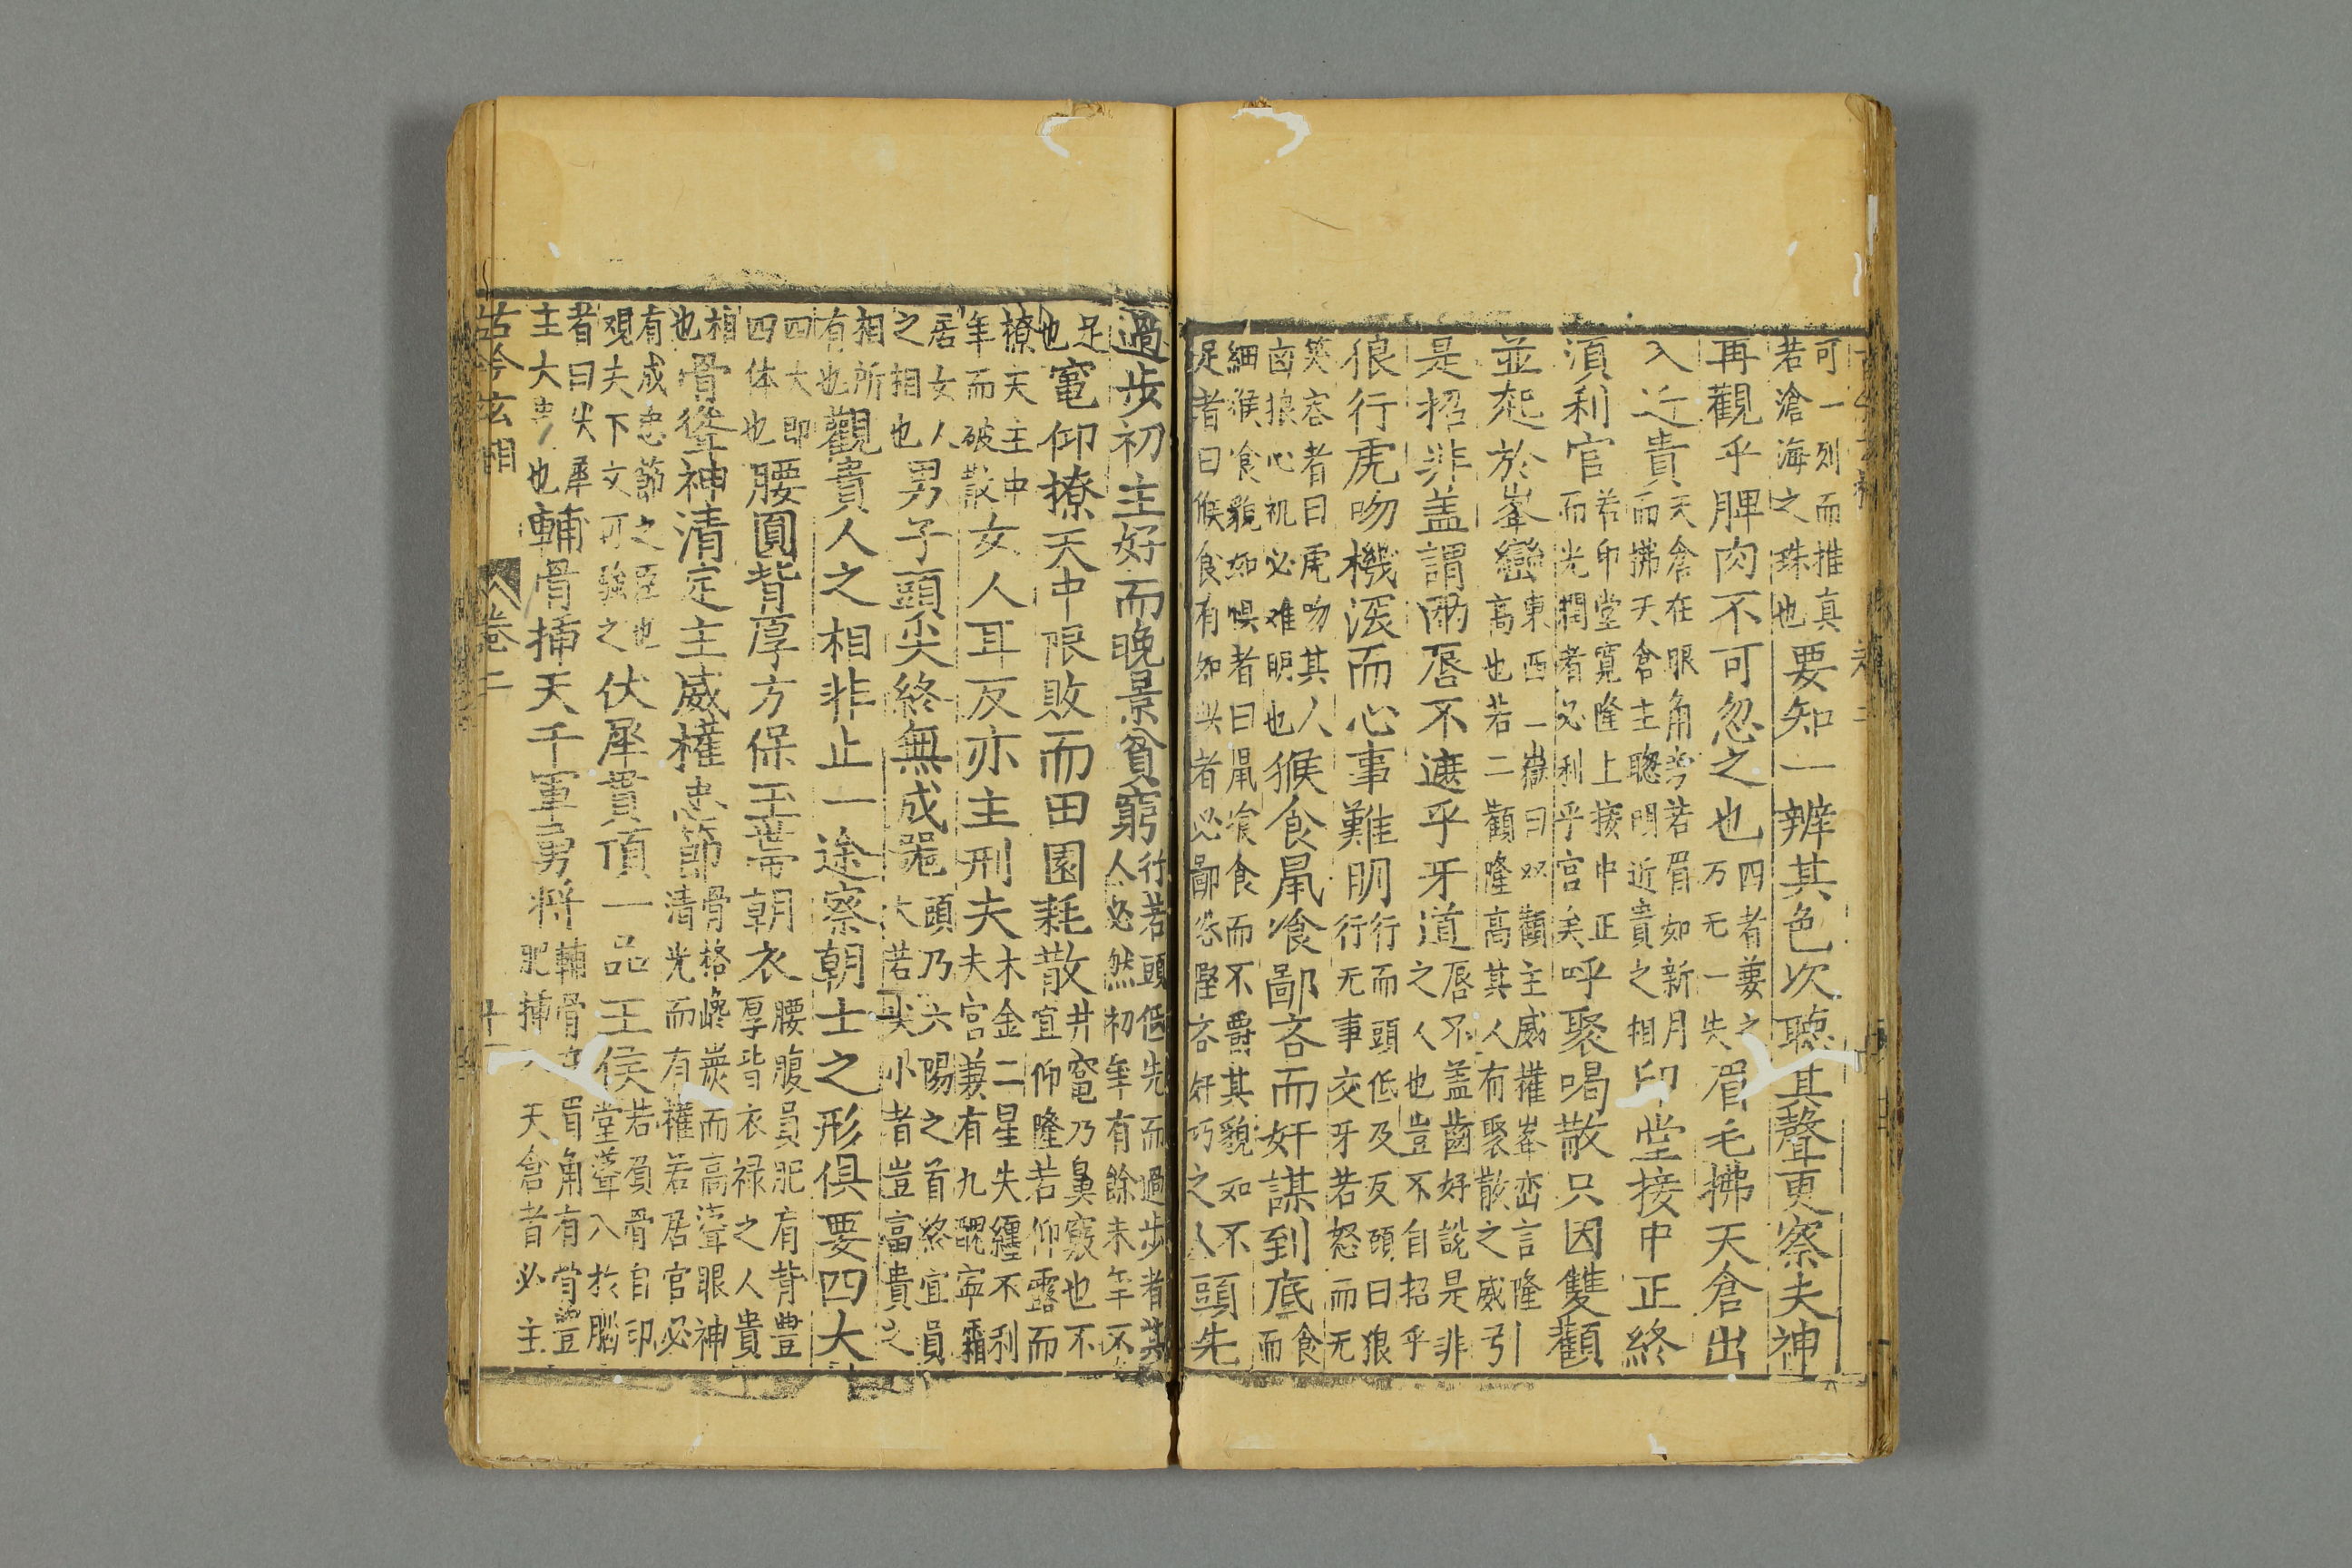 可一列而推真
若滄海之珠也
要知一辨其色次聽其聲更察夫神
再觀乎脾肉不可忽之也
四者萋之
万无一失
眉毛拂天倉出
入近貴
天倉在眼角旁若眉如新月
而拂天倉主聰明近貴之相
印堂接中正終
須利官
若印堂寬隆上接中正
而光潤者必利乎官矣
呼聚喝散只因雙顴
並起於峯巒
東西一嶽曰双顴主威權峯峦言隆
高也若二顴隆高其人有聚散之威引
是招非盖謂兩唇不遮乎牙道
唇不盖齒好說是非
之人也豈不自招乎
狼行虎吻機深而心事難明
行而頭低及反頭曰狼
行无事交牙若怒而无
笑容者曰虎吻其人
卤狼心机必难明也
猴食鼠飡鄙吝而奸謀到底
食
而
細猴食貌如惧者曰鼠飡食而不爵其貌如不
足者曰候食有如此者必鄙恡慳吝奸巧之人
頭先
過步初主好而晚景貧窮
行若頭低先而過步者其
人必然初年有餘未年不
足
也
竃仰撩天中限敗而田園耗散
井竃乃鼻竅也不
宜仰隆若仰露而
撩天主中
年而破散
女人耳反亦主刑夫
木金二星失纏不利
夫宮兼有九醜寕霜
居女人
之相也
男子頭尖終無成器
頭乃六陽之首終宜員
大若尖小者豈富貴之
相所
有也
觀貴人之相非止一途察朝士之形俱要四大
四大即
四体也
腰圓背厚方保玉帶朝衣
腰腹員肥有背豊
厚皆衣禄之人貴
相
也
骨聳神清定主威權忠節
骨格巉巖而高聳眼神
清光而有權若居官必
有成忠節之臣也
觀夫下文可強之
伏犀貫頂一品王侯
若頂骨自印
堂聳入於腦
者曰犬犀
主大貴也
輔骨插天千軍勇将
輔骨 眉角有骨豊
肥挿 天倉者必主
古今玄相
卷二
十一